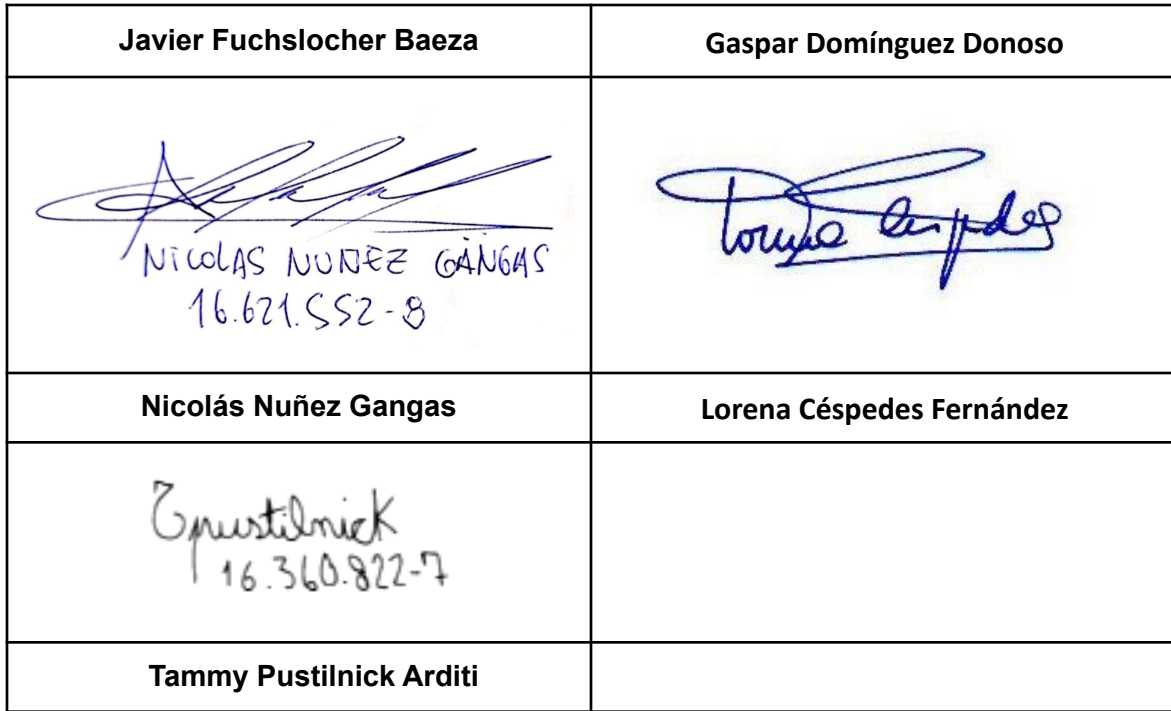 Javier Fuchslocher Baeza
Gaspar Domínguez Donoso
NICOLAS NUNEZ GANGAS
16.621.552-8
Lorena Céspedes
Nicolás Nuñez Gangas
Lorena Céspedes Fernández
Tpustilnick
16.360.822-7
Tammy Pustilnick Arditi